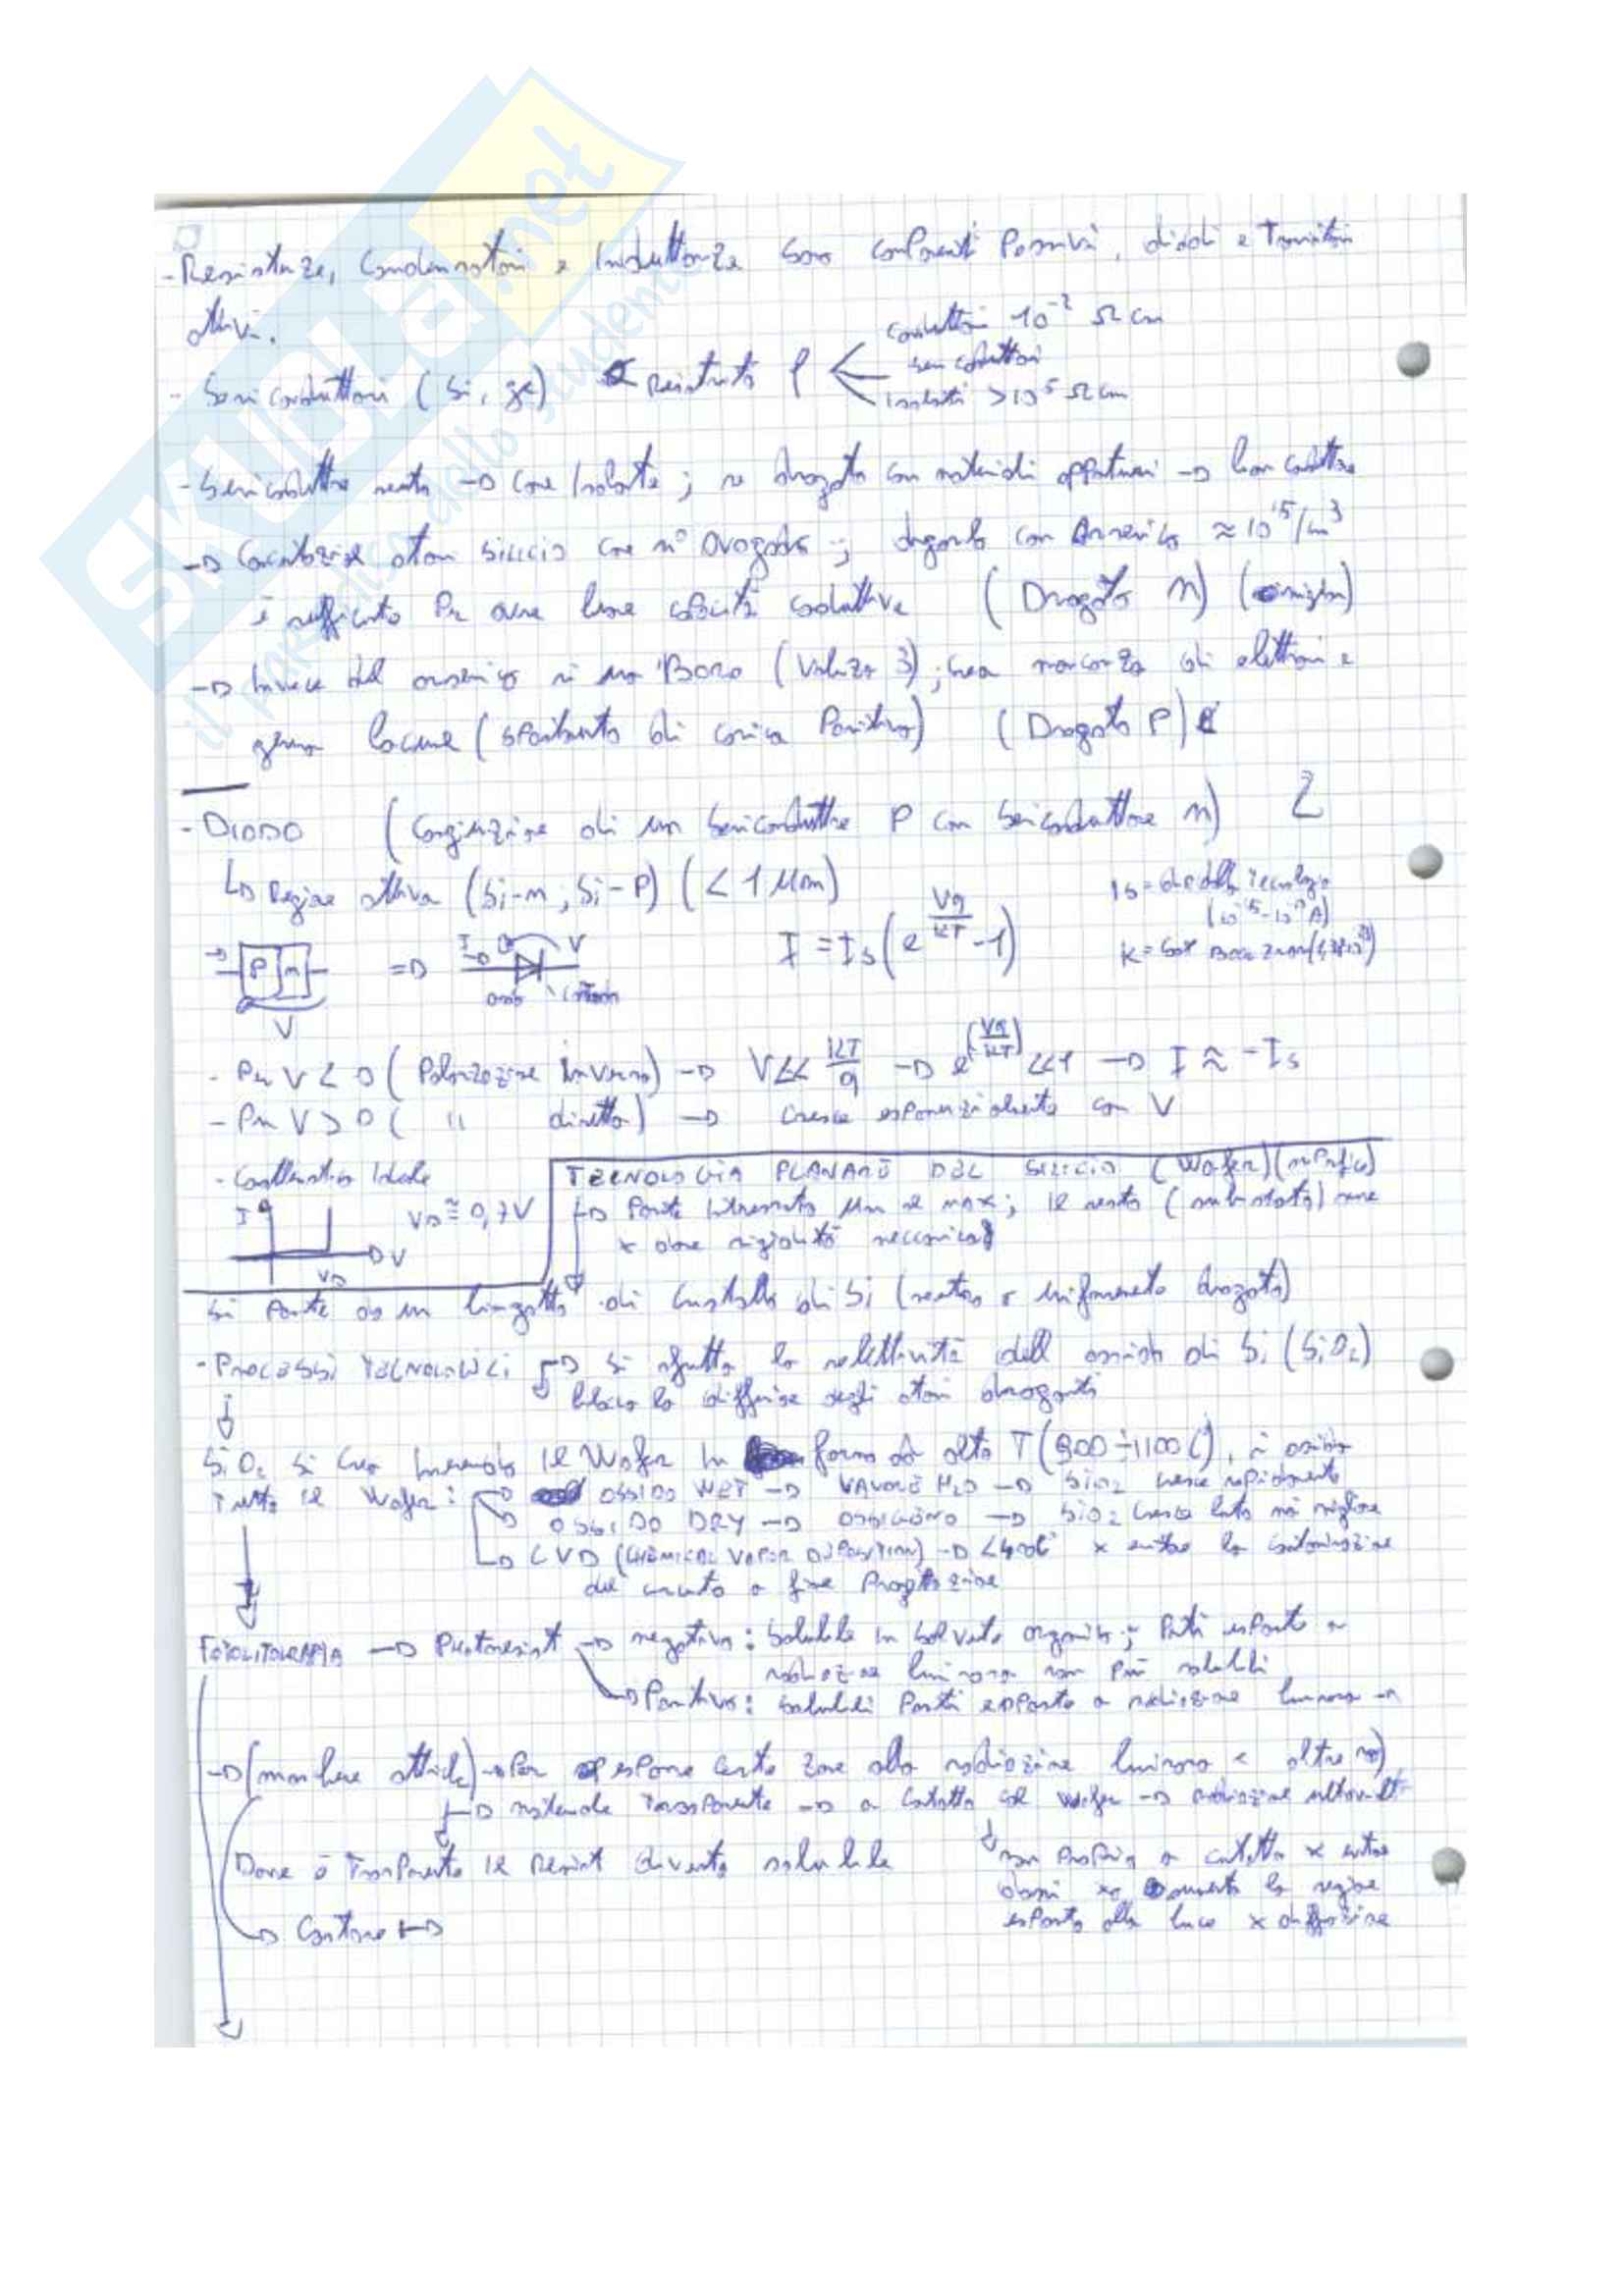 SKUOLA.net
il paradiso dello studente
- Resistenze, Condensatori e Induttanze sono componenti Passivi, diodi e Transistori
attivi.
- Semiconduttori (Si, ge) Resistività ρ
conduttori 10^-2 Ω cm
semiconduttori
isolanti >10^5 Ω cm
- Semiconduttore neutro → come Isolante ; se drogato con materiali opportuni → buon conduttore
→ Concentrazione atomi Silicio come n° Avogadro ; drogando con Arsenico ≈ 10^15/cm^3
è sufficiente Per avere buone capacità conduttive (Drogato n)
→ Invece del arsenico si usa Boro (Valenza 3) ; crea mancanza di elettroni e
genera lacune (spostamento di carica Positiva) (Drogato P)
- DIODO (Congiunzione di un Semiconduttore P con Semiconduttore n) 2
↳ Regione attiva (Si-n ; Si-P) (< 1 μm)
Is = dip dalla Tecnologia
I = Is (e^(Vq/KT) - 1)
K = cost Boltzman
P n ⇒ I V
anodo catodo
V
- Per V < 0 (Polarizzazione Inversa) → V << KT/q → e^(Vq/KT) << 1 → I ≈ -Is
- Per V > 0 ( " diretta) → Cresce esponenzialmente con V
- Caratteristica Ideale
I V VD ≅ 0,7V
VD
TECNOLOGIA PLANARE DEL SILICIO (Wafer) (superficie)
→ Parte Interessata μm al max ; il resto (substrato) serve
x dare rigidità meccanica
Si Parte da un lingotto di Cristallo di Si (neutro o uniformemente drogato)
- PROCESSI TECNOLOGICI → Si sfrutta la selettività dell ossido di Si (SiO2)
blocca la diffusione degli atomi droganti
SiO2 Si crea inserendo il Wafer in forno ad alta T (900÷1100 C), si ossida
Tutto il Wafer : → OSSIDO WET → VAPORE H2O → SiO2 cresce rapidamente
→ OSSIDO DRY → OSSIGENO → SiO2 cresce lento ma migliore
→ CVD (CHEMICAL VAPOR DEPOSITION) → <400C° x evitare la contaminazione
del circuito a fine Progettazione
FOTOLITOGRAFIA → Photoresist → negativo : Solubile in Solvente organico ; Parti esposte a
radiazione luminosa non più solubili
→ Positivo : Solubili Parti esposte a radiazione luminosa
→ (maschere ottiche) → Per esporre certe zone alla radiazione luminosa e altre no)
→ materiale Trasparente → a Contatto col Wafer → radiazione ultravil.
Dove è Trasparente il Resist diventa solubile
non Proprio a contatto x evitare
danni xò aumenta la regione
esposta alla luce x diffrazione
→ Contone →